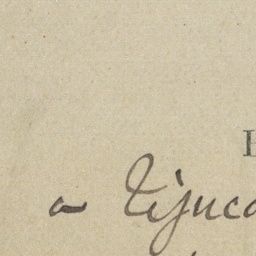 E
a Tijuca